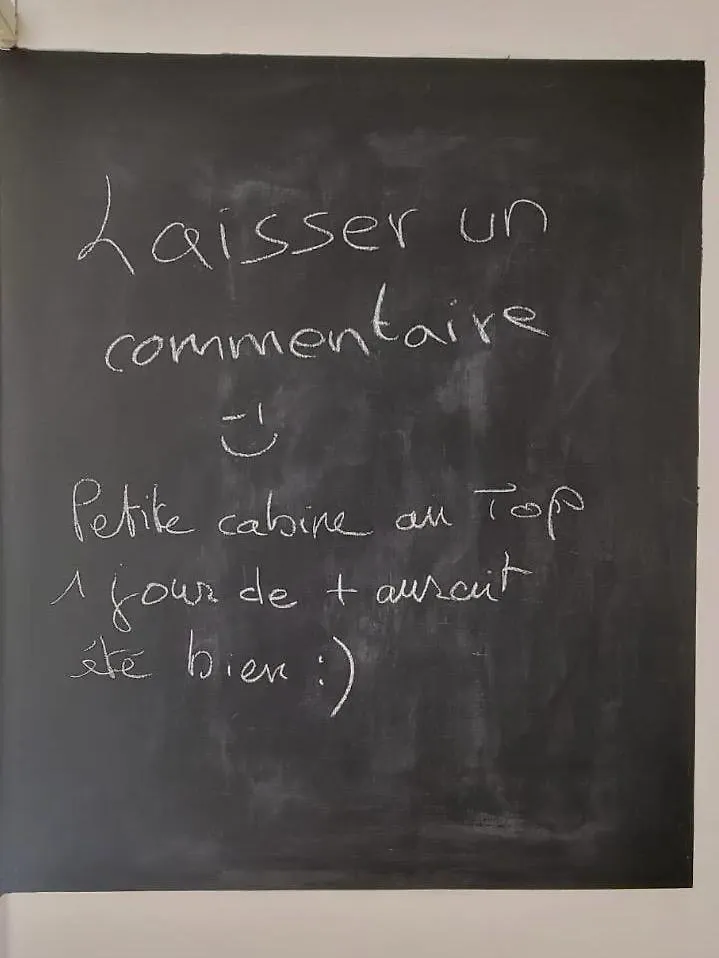 Laisser un
commentaire
Petite cabine au Top
1 jour de + aurait
été bien :)